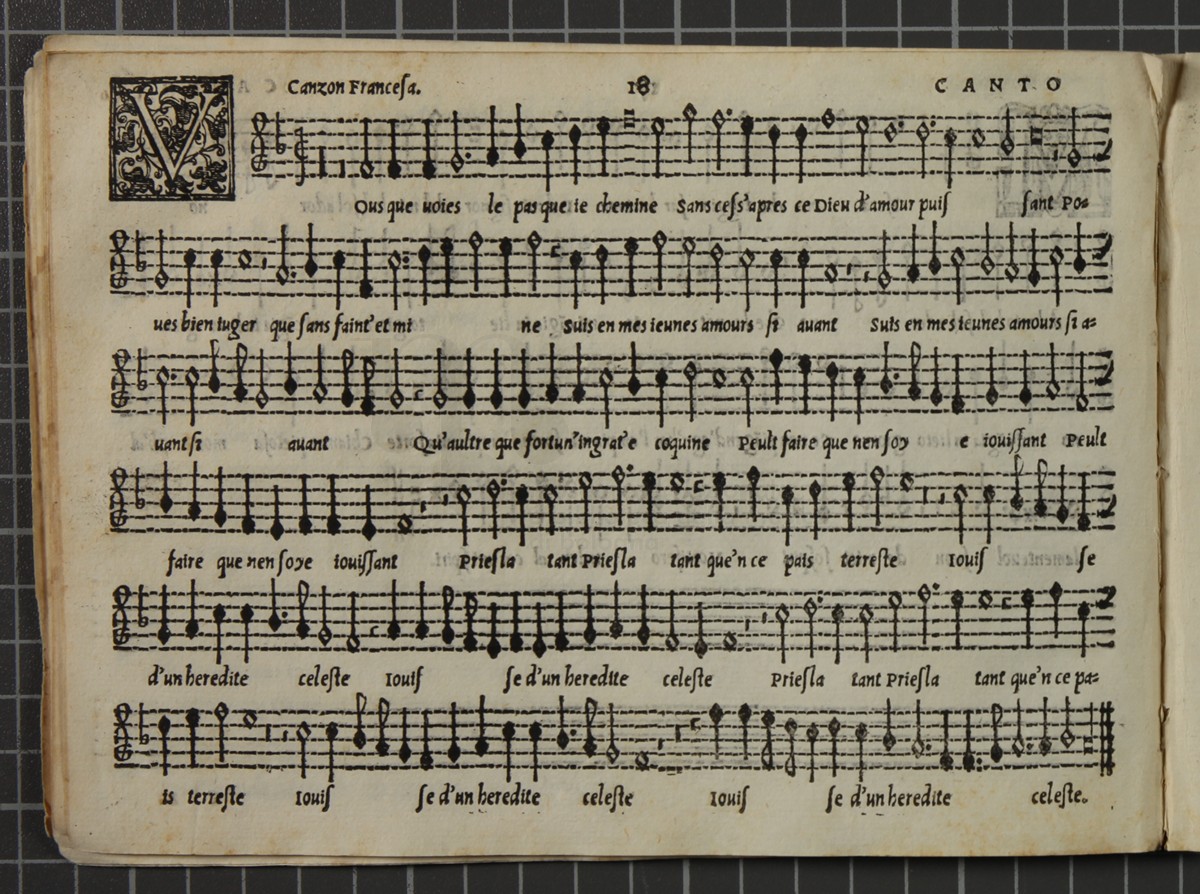 Canzon Francesa. 18 CANTO
VOus que uoies le pas que ie chemine Sans cess'apres ce Dieu d'amour puis sant Po=
ues bien iuger que sans faint'et mi ne Suis en mes ieunes amours si auant Suis en mes ieunes amours si a=
uant si auant Qu'aultre que fortun'ingrat'e coquine Peult faire que nen soy e iouissant Peult
faire que nen soye iouissant Priesla tant Priesla tant que'n ce pais terreste Iouis se
d'un heredite celeste Iouis se d'un heredite celeste Priesla tant Priesla tant que'n ce pa=
is terreste Iouis se d'un heredite celeste Iouis se d'un heredite celeste.